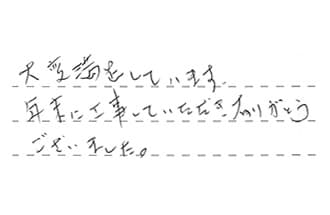 大変満足しています。
年末に工事していただきありがとう
ございました。